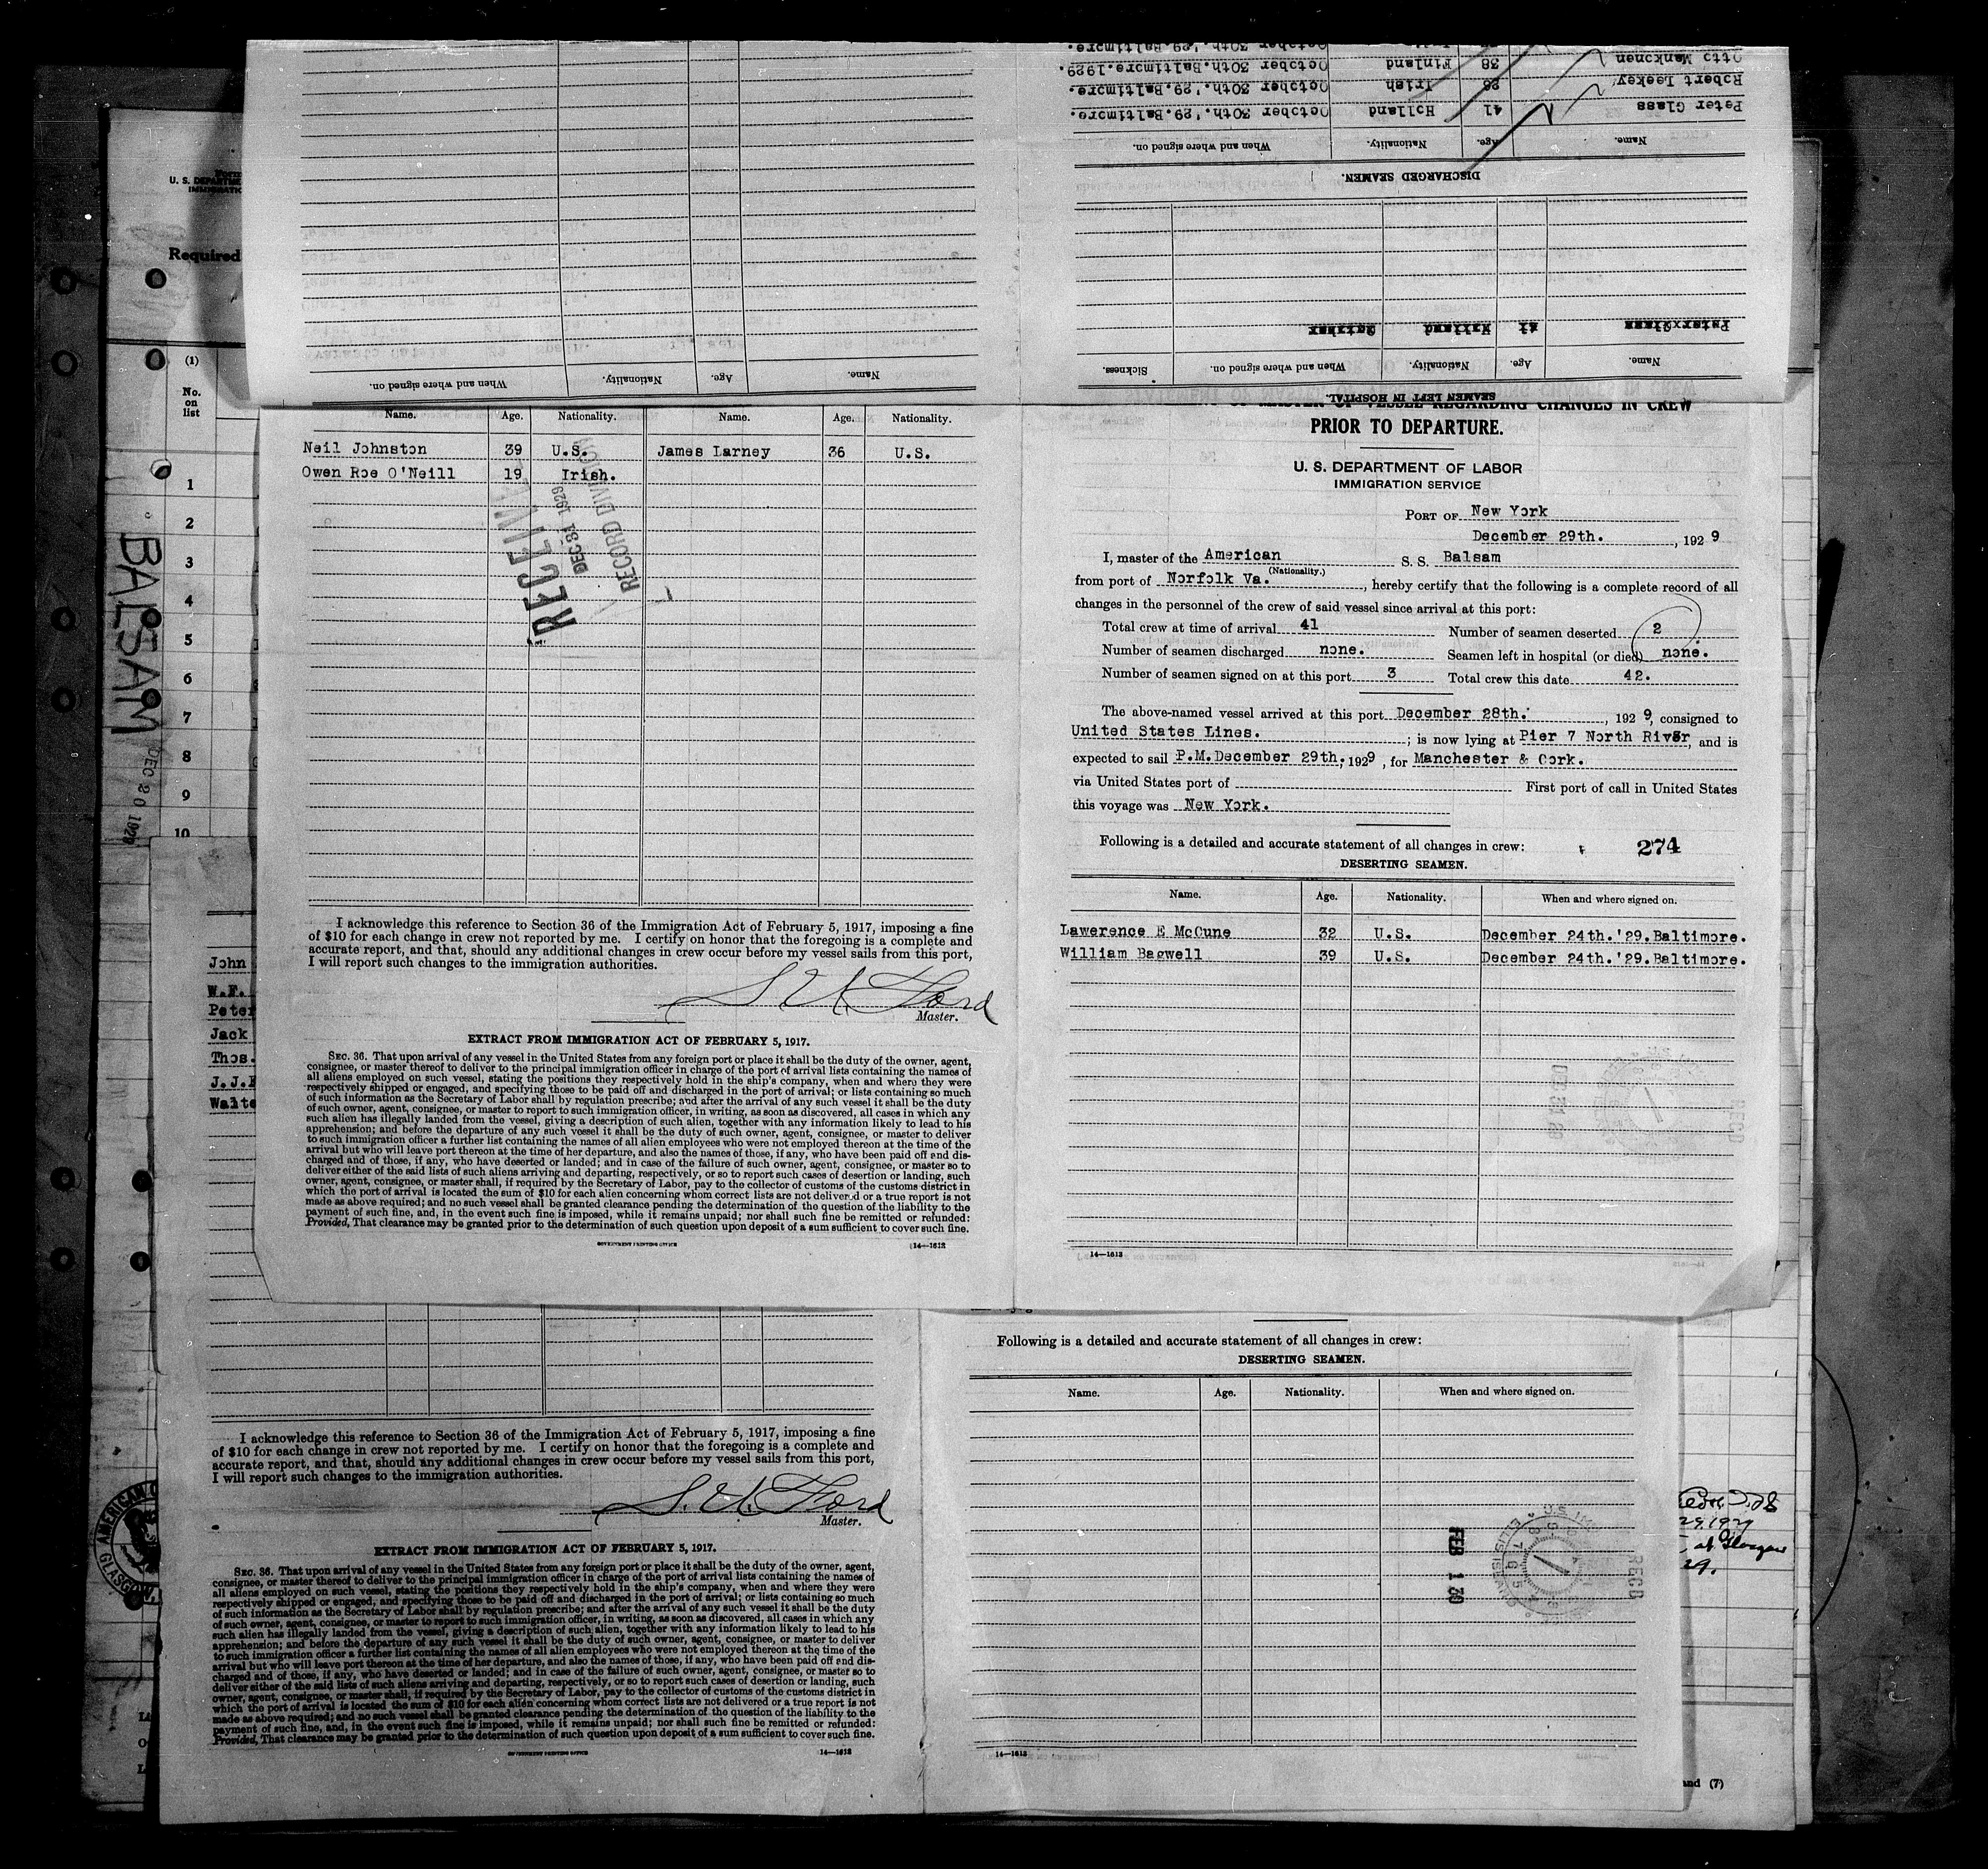 Otto Mankonen 38 Finland October 30th.Baltimore.1929.
Robert Leekey 26 Irish October 30th.'29.Baltimore.
Peter Glass 41 Holland October 30th.'29.Baltimore.
Name. Age. Nationality. When and where signed on.
DISCHARGED SEAMEN.
Peter Glass 41 Holland October
Name. Age. Nationality. When and where signed on. Sickness.
SEAMEN LEFT IN HOSPITAL.
Name. Age. Nationality. When and where signed on.
U. S. DEPARTME
IMMIGRATIO
Required
(1)
No.
on
list
1
2
3
4
5
6
7
8
9
10
BALSAM
DEC 20 1929
Name. Age. Nationality. Name. Age. Nationality.
Neil Johnston 39 U.S. James Larney 36 U.S.
Owen Roe O'Neill 19 Irish.
RECEIVED
DEC 31 1929
RECORD DIVISION
I acknowledge this reference to Section 36 of the Immigration Act of February 5, 1917, imposing a fine
of $10 for each change in crew not reported by me. I certify on honor that the foregoing is a complete and
accurate report, and that, should any additional changes in crew occur before my vessel sails from this port,
I will report such changes to the immigration authorities.
Ford
Master.
EXTRACT FROM IMMIGRATION ACT OF FEBRUARY 5, 1917.
SEC. 36. That upon arrival of any vessel in the United States from any foreign port or place it shall be the duty of the owner, agent,
consignee, or master thereof to deliver to the principal immigration officer in charge of the port of arrival lists containing the names of
all aliens employed on such vessel, stating the positions they respectively hold in the ship's company, when and where they were
respectively shipped or engaged, and specifying those to be paid off and discharged in the port of arrival; or lists containing so much
of such information as the Secretary of Labor shall by regulation prescribe; and after the arrival of any such vessel it shall be the duty
of such owner, agent, consignee, or master to report to such immigration officer, in writing, as soon as discovered, all cases in which any
such alien has illegally landed from the vessel, giving a description of such alien, together with any information likely to lead to his
apprehension; and before the departure of any such vessel it shall be the duty of such owner, agent, consignee, or master to deliver
to such immigration officer a further list containing the names of all alien employees who were not employed thereon at the time of the
arrival but who will leave port thereon at the time of her departure, and also the names of those, if any, who have been paid off and dis-
charged and of those, if any, who have deserted or landed; and in case of the failure of such owner, agent, consignee, or master so to
deliver either of the said lists of such aliens arriving and departing, respectively, or so to report such cases of desertion or landing, such
owner, agent, consignee, or master shall, if required by the Secretary of Labor, pay to the collector of customs of the customs district in
which the port of arrival is located the sum of $10 for each alien concerning whom correct lists are not delivered or a true report is not
made as above required; and no such vessel shall be granted clearance pending the determination of the question of the liability to the
payment of such fine, and, in the event such fine is imposed, while it remains unpaid; nor shall such fine be remitted or refunded:
Provided, That clearance may be granted prior to the determination of such question upon deposit of a sum sufficient to cover such fine.
GOVERNMENT PRINTING OFFICE 14—1613
OF MASTER OF VESSEL REGARDING CHANGES IN CREW
PRIOR TO DEPARTURE.
U. S. DEPARTMENT OF LABOR
IMMIGRATION SERVICE
PORT OF New York
December 29th. , 192 9
I, master of the American S. S. Balsam
(Nationality.)
from port of Norfolk Va. , hereby certify that the following is a complete record of all
changes in the personnel of the crew of said vessel since arrival at this port:
Total crew at time of arrival 41 Number of seamen deserted 2
Number of seamen discharged none. Seamen left in hospital (or died) none.
Number of seamen signed on at this port 3 Total crew this date 42.
The above-named vessel arrived at this port December 28th. , 192 9, consigned to
United States Lines. ; is now lying at Pier 7 North River, and is
expected to sail P.M.December 29th, 1929 , for Manchester & Cork.
via United States port of First port of call in United States
this voyage was New York.
Following is a detailed and accurate statement of all changes in crew: 274
DESERTING SEAMEN.
Name. Age. Nationality. When and where signed on.
Lawerence E McCune 32 U.S. December 24th.'29.Baltimore.
William Bagwell 39 U.S. December 24th.'29.Baltimore.
14—1613
John
W.F.
Peter
Jack
Thos.
J.J.
Walte
I acknowledge this reference to Section 36 of the Immigration Act of February 5, 1917, imposing a fine
of $10 for each change in crew not reported by me. I certify on honor that the foregoing is a complete and
accurate report, and that, should any additional changes in crew occur before my vessel sails from this port,
I will report such changes to the immigration authorities.
Ford
Master.
EXTRACT FROM IMMIGRATION ACT OF FEBRUARY 5, 1917.
SEC. 36. That upon arrival of any vessel in the United States from any foreign port or place it shall be the duty of the owner, agent,
consignee, or master thereof to deliver to the principal immigration officer in charge of the port of arrival lists containing the names of
all aliens employed on such vessel, stating the positions they respectively hold in the ship's company, when and where they were
respectively shipped or engaged, and specifying those to be paid off and discharged in the port of arrival; or lists containing so much
of such information as the Secretary of Labor shall by regulation prescribe; and after the arrival of any such vessel it shall be the duty
of such owner, agent, consignee, or master to report to such immigration officer, in writing, as soon as discovered, all cases in which any
such alien has illegally landed from the vessel, giving a description of such alien, together with any information likely to lead to his
apprehension; and before the departure of any such vessel it shall be the duty of such owner, agent, consignee, or master to deliver
to such immigration officer a further list containing the names of all alien employees who were not employed thereon at the time of the
arrival but who will leave port thereon at the time of her departure, and also the names of those, if any, who have been paid off and dis-
charged and of those, if any, who have deserted or landed; and in case of the failure of such owner, agent, consignee, or master so to
deliver either of the said lists of such aliens arriving and departing, respectively, or so to report such cases of desertion or landing, such
owner, agent, consignee, or master shall, if required by the Secretary of Labor, pay to the collector of customs of the customs district in
which the port of arrival is located the sum of $10 for each alien concerning whom correct lists are not delivered or a true report is not
made as above required; and no such vessel shall be granted clearance pending the determination of the question of the liability to the
payment of such fine, and, in the event such fine is imposed, while it remains unpaid; nor shall such fine be remitted or refunded:
Provided, That clearance may be granted prior to the determination of such question upon deposit of a sum sufficient to cover such fine.
GOVERNMENT PRINTING OFFICE 14—1613
Following is a detailed and accurate statement of all changes in crew:
DESERTING SEAMEN.
Name. Age. Nationality. When and where signed on.
14—1613
FEB 1 30
RECD
AMERICAN
GLASGOW
at Glasgow
and (7)